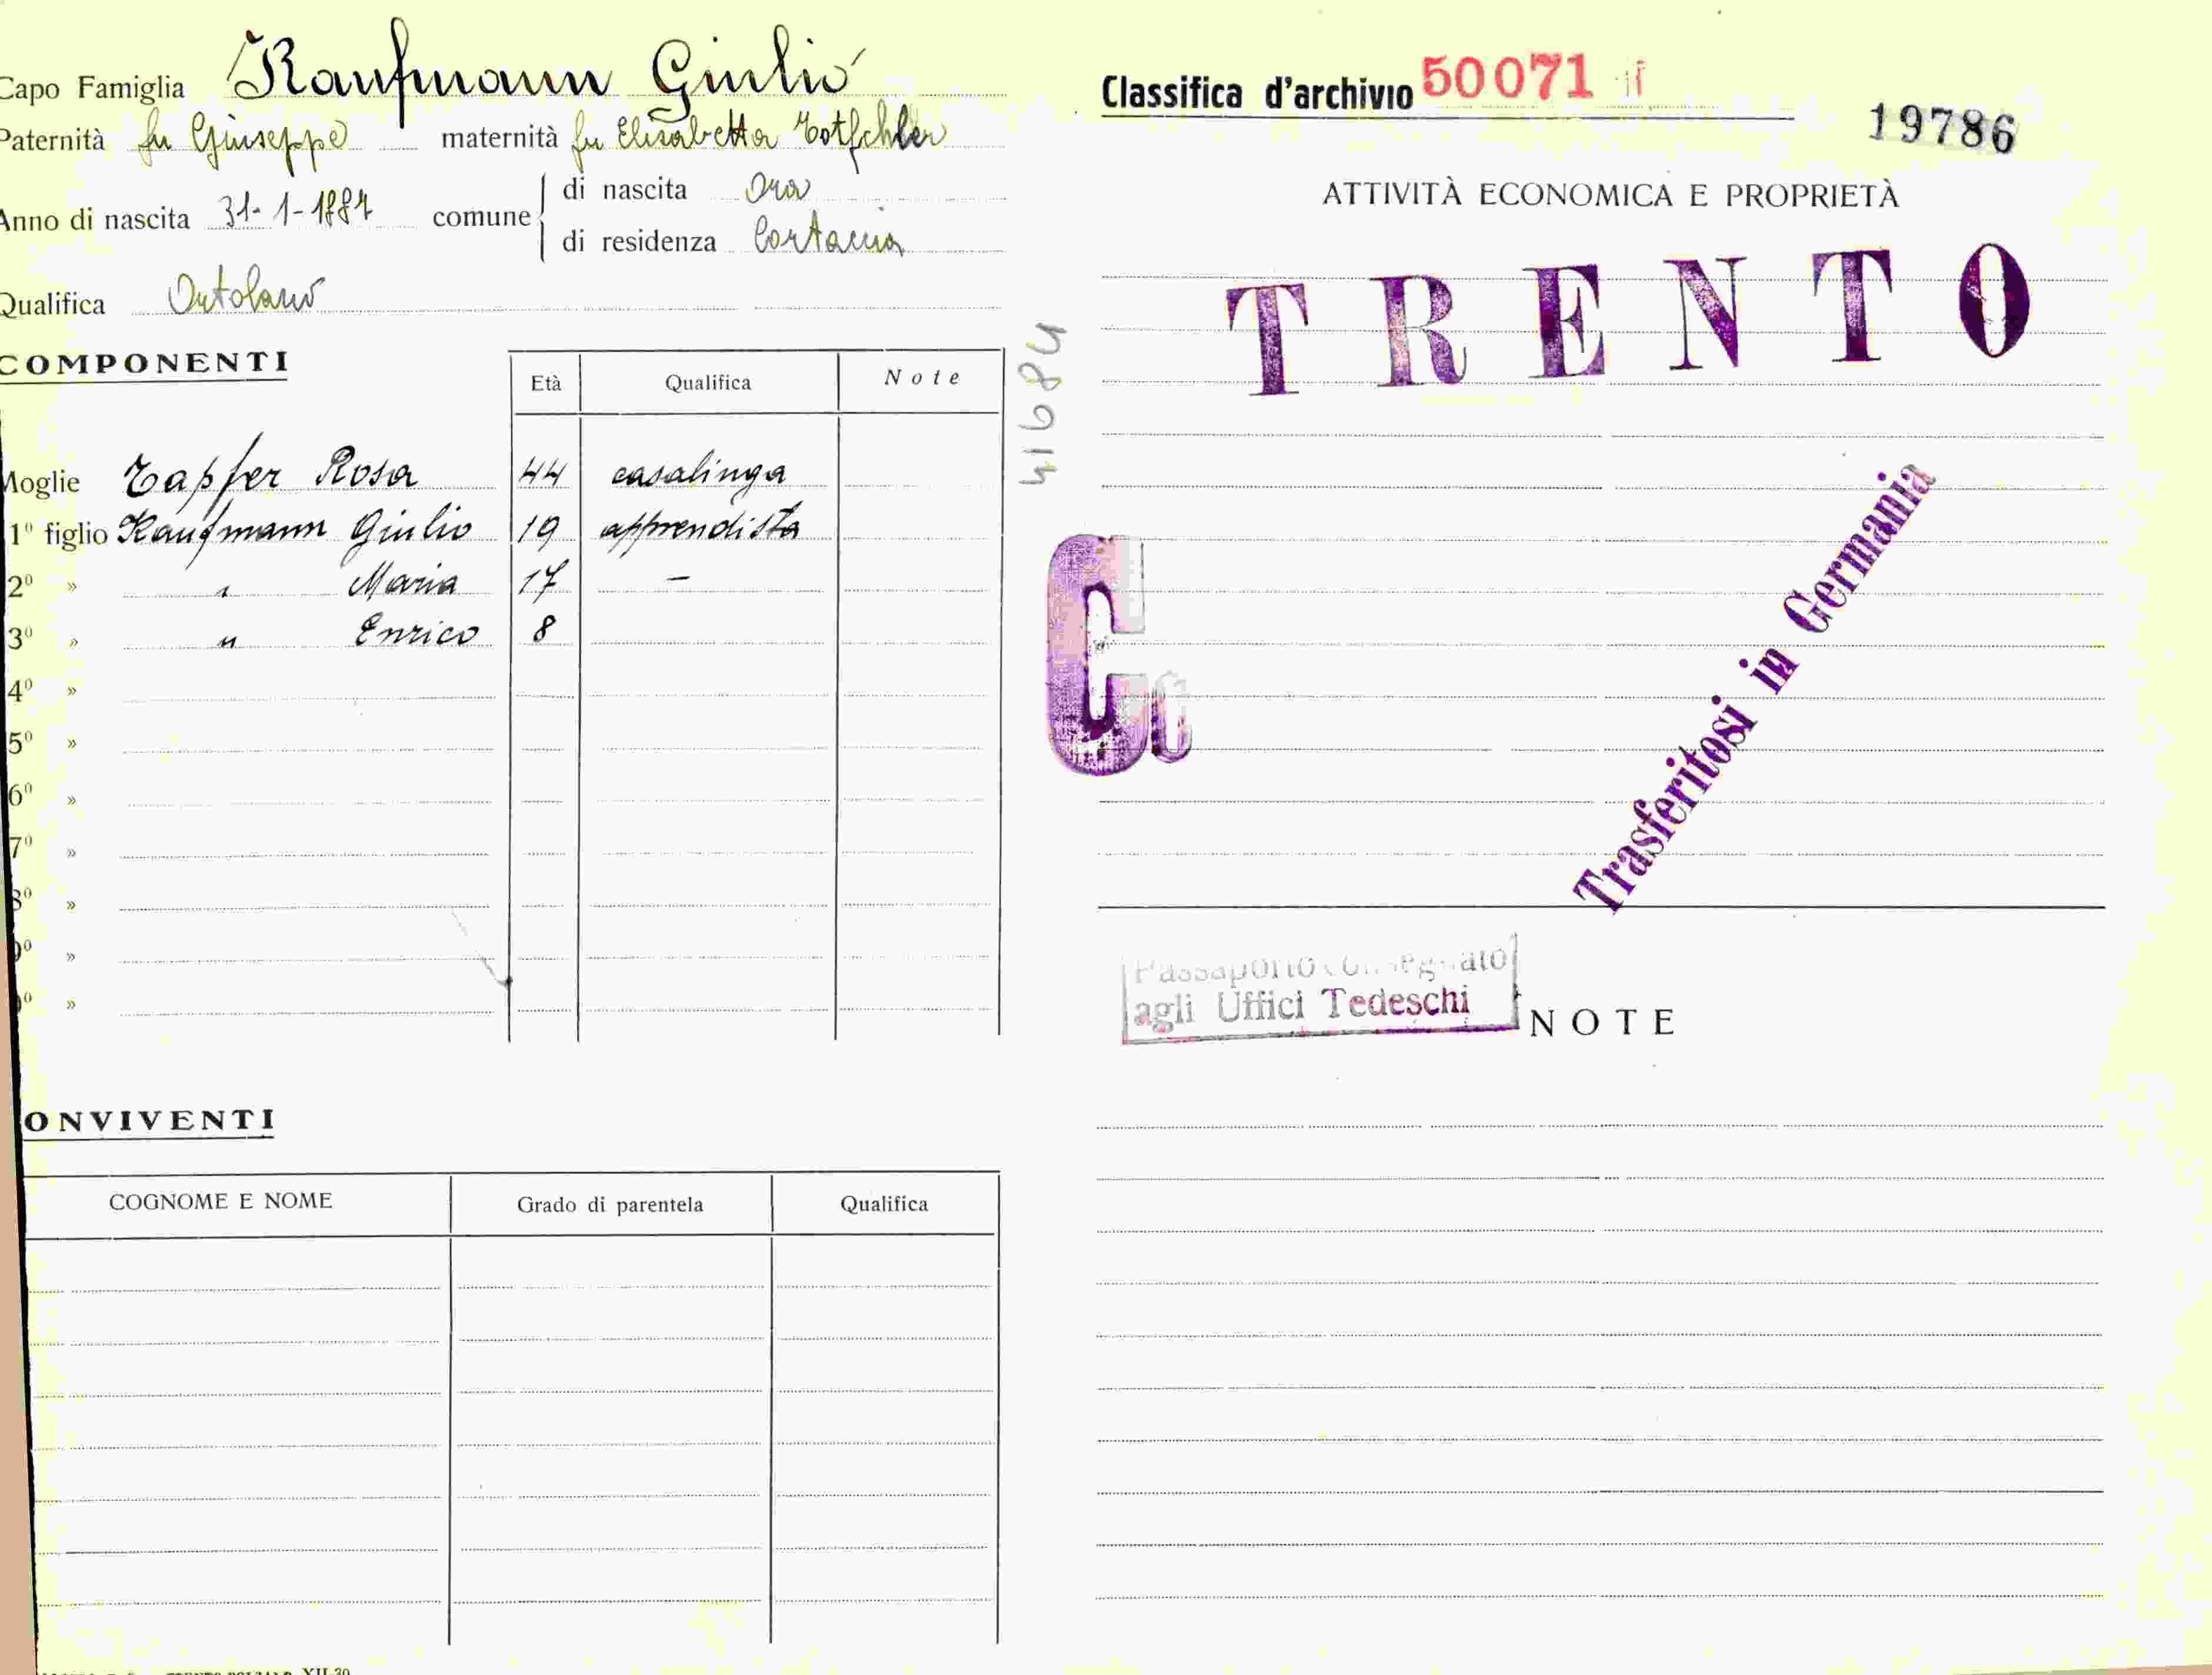 Capo Famiglia Kaufmann Giulio
Paternità fu Giuseppe maternità fu Elisabetta
Anno di nascita 31-1-1884 comune di nascita Ora
di residenza Cortaccia
Qualifica Ortolano
COMPONENTI Età Qualifica Note
Moglie Zapfer Rosa 44 casalinga
1° figlio Kaufmann Giulio 19 apprendista
2° » " Maria 17 —
3° » " Enrico 8
4° »
5° »
6° »
7° »
8° »
9° »
0° »
ONVIVENTI
COGNOME E NOME Grado di parentela Qualifica
41684
Classifica d'archivio 50071
19786
ATTIVITÀ ECONOMICA E PROPRIETÀ
TRENTO
C
Trasferitosi in Germania
Passaporto consegnato
agli Uffici Tedeschi
NOTE